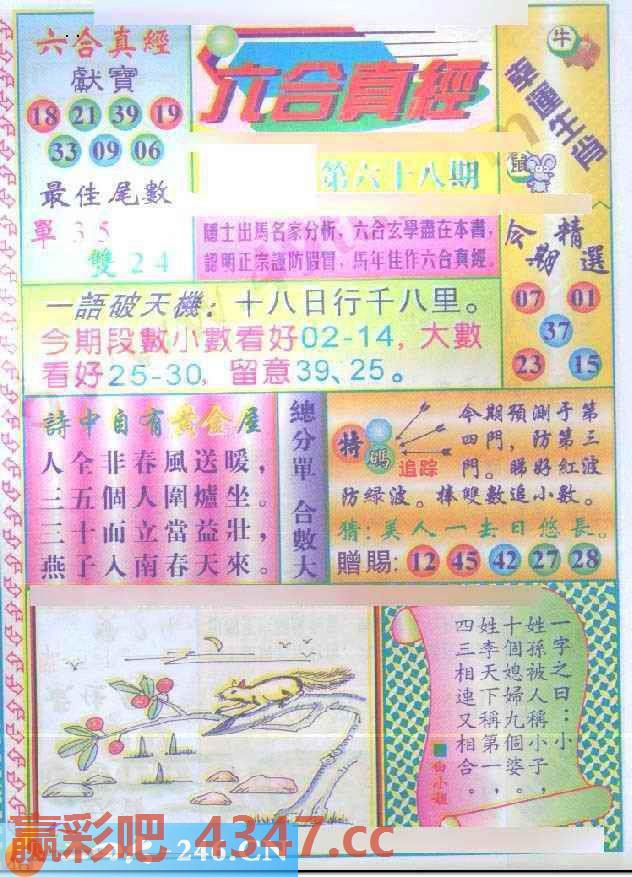 六合真經
獻寶
18 21 39 19
33 09 06
最佳尾數
單 35
雙 24
六合真經
第六十八期
隱士出馬名家分析，六合玄學盡在本書，
認明正宗謹防假冒，馬年佳作六合真經。
牛
幸運生肖
鼠
今期精選
07 01
37
23 15
一語破天機：十八日行千八里。
今期段數小數看好02-14，大數
看好25-30，留意39、25。
詩中自有黃金屋
人全非春風送暖，
三五個人圍爐坐。
三十而立當益壯，
燕子入南春天來。
總分單 合數大
特碼追踪
今期預測于第
四門，防第三
門。睇好紅波
防绿波。捧雙數追小數。
猜：美人一去日悠長。
贈賜：12 45 42 27 28
一字之曰：小
姓孫被人稱小子，
十個媳婦九個婆。
姓李天下稱第一，
四三相連又相合。
白小姐
赢彩吧 4347.cc
246.CN